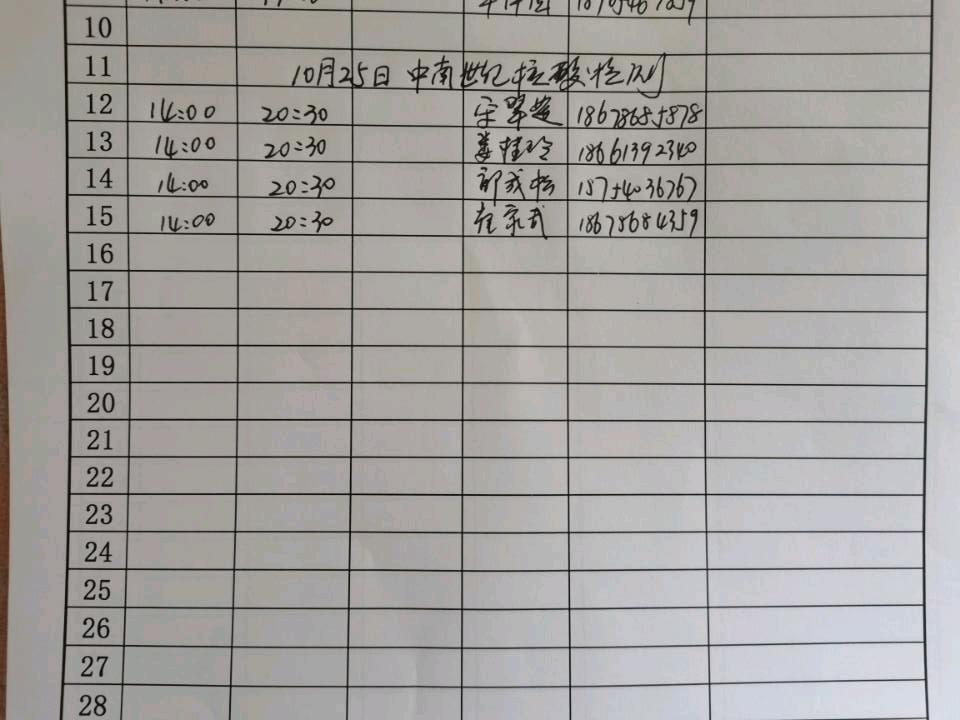 10
11 10月25日 中南世纪核酸检测
12 14:00 20:30 18678685878
13 14:00 20:30 娄桂玲 18661392340
14 14:00 20:30 15754036767
15 14:00 20:30 18678684359
16
17
18
19
20
21
22
23
24
25
26
27
28